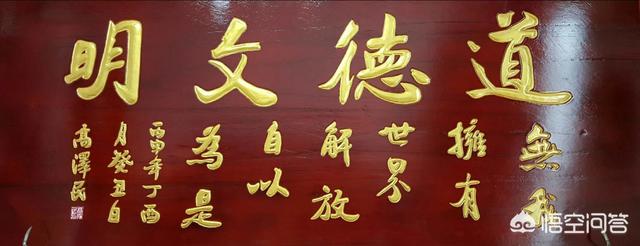 道德文明
無我
擁有
世界
解放
自以
為是
丙申年丁酉
月癸丑日
高澤民
悟空问答